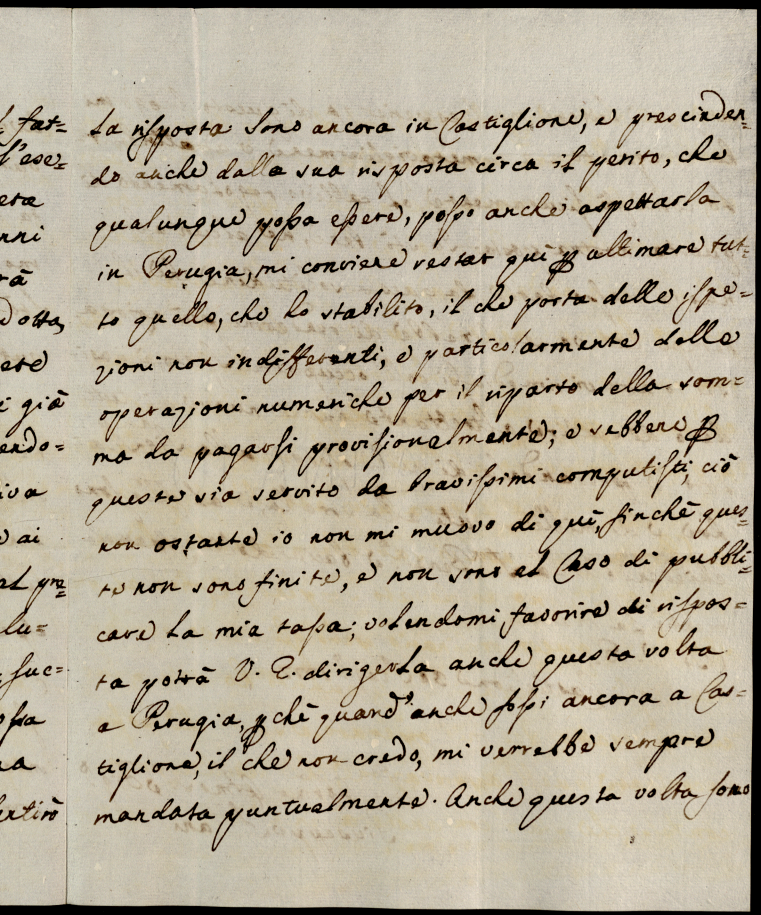 fat=
l'ese=
eta
nni
rà
dotta,
ete
i già
endo=
iva
e ai
al pre=
lu=
suc=
ossa
na
entirò
La risposta sono ancora in Castiglione, e prescinden=
do anche dalla sua risposta circa il perito, che
qualunque possa essere, posso anche aspettarla
in Perugia, mi conviene restar quì ꝑ ultimare tut=
to quello, che ho stabilito, il che porta delle ispe=
zioni non indifferenti, e particolarmente delle
operazioni numeriche per il riparto della som=
ma da pagarsi provisionalmente; e sebbene ꝑ
queste sia servito da bravissimi computisti, ciò
non ostante io non mi muovo di quì, finchè ques=
te non sono finite, e non sono al Caso di pubbli=
care la mia tassa; volendomi favorire di rispos=
ta potrà V. E. dirigerla anche questa volta
a Perugia, ꝑchè quand'anche fossi ancora a Cas=
tiglione, il che non credo, mi verrebbe sempre
mandata puntualmente. Anche questa volta sono